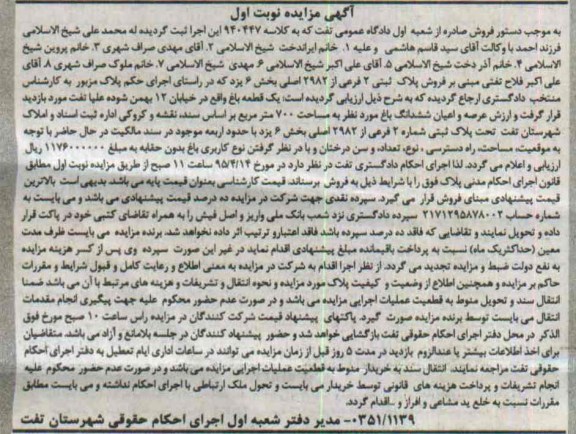 آگهی مزایده نوبت اول
به موجب دستور فروش صادره از شعبه اول دادگاه عمومی تفت که به کلاسه ۹۴۰۴۴۷ این اجرا ثبت گردیده له محمد علی شیخ الاسلامی
فرزند احمد با وکالت آقای سید قاسم هاشمی و علیه ۱. خانم ایراندخت شیخ الاسلامی ۲. آقای مهدی صراف شهری ۳. خانم پروین شیخ
الاسلامی ۴. خانم آذر دخت شیخ الاسلامی ۵. آقای علی اکبر شیخ الاسلامی ۶. مهدی شیخ الاسلامی ۷. خانم ملوک صراف شهری ۸. آقای
علی اکبر فلاح تفتی مبنی بر فروش پلاک ثبتی ۲ فرعی از ۲۹۸۲ اصلی بخش ۶ یزد که در راستای اجرای حکم پلاک مزبور به کارشناس
منتخب دادگستری ارجاع گردیده که به شرح ذیل ارزیابی گردیده است: یک قطعه باغ واقع در خیابان ۱۲ بهمن شوده علیا تفت مورد بازدید
قرار گرفت و ارزش عرصه و اعیان ششدانگ باغ مورد نظر به مساحت ۷۰۰ متر مربع بر اساس سند، نقشه و کروکی اداره ثبت اسناد و املاک
شهرستان تفت تحت پلاک ثبتی شماره ۲ فرعی از ۲۹۸۲ اصلی بخش ۶ یزد با حدود اربعه موجود در سند مالکیت در حال حاضر با توجه
به موقعیت، مساحت، راه دسترسی، نوع، تعداد، و سن درختان و با در نظر گرفتن نوع کاربری باغ بدون حقابه به مبلغ ۱۱۷۶۰۰۰۰۰۰ ریال
ارزیابی و اعلام می گردد. لذا اجرای احکام دادگستری تفت در نظر دارد در مورخ ۹۵/۴/۱۴ ساعت ۱۱ صبح از طریق مزایده نوبت اول مطابق
قانون اجرای احکام مدنی پلاک فوق را با شرایط ذیل به فروش برساند. قیمت کارشناسی بعنوان قیمت پایه می باشد. بدیهی است بالاترین
قیمت پیشنهادی مبنای فروش قرار می گیرد. سپرده نقدی جهت شرکت در مزایده ده درصد قیمت پیشنهادی می باشد و می بایست به
شماره حساب ۲۱۷۱۲۹۵۸۷۸۰۰۲ سپرده دادگستری نزد شعب بانک ملی واریز و اصل فیش را به همراه تقاضای کتبی خود در پاکت قرار
داده و تحویل نمایند و تقاضایی که فاقد ده درصد سپرده باشد فاقد اعتبار و ترتیب اثر داده نخواهد شد. برنده مزایده می بایست ظرف مدت
معین (حداکثر یک ماه) نسبت به پرداخت باقیمانده مبلغ پیشنهادی اقدام نماید در غیر این صورت سپرده وی پس از کسر هزینه مزایده
به نفع دولت ضبط و مزایده تجدید می گردد. از نظر اجرا اقدام به شرکت در مزایده به معنی اطلاع و رعایت کامل و قبول شرایط و مقررات
حاکم بر مزایده و همچنین اطلاع از وضعیت و کیفیت پلاک مورد مزایده و نحوه انتقال و تشریفات و هزینه های مرتبط با آن می باشد ضمنا
انتقال سند و تحویل منوط به قطعیت عملیات اجرایی مزایده می باشد و در صورت عدم حضور محکوم علیه جهت پیگیری انجام مقدمات
انتقال می بایست توسط برنده مزایده صورت گیرد. پاکتهای پیشنهاد قیمت شرکت کنندگان در مزایده راس ساعت ۱۰ صبح مورخ فوق
الذکر در محل دفتر اجرای احکام حقوقی تفت بازگشایی خواهد شد و حضور پیشنهاد کنندگان در جلسه بلامانع و آزاد می باشد. متقاضیان
برای اخذ اطلاعات بیشتر یا عندالزوم بازدید در مدت ۵ روز قبل از زمان مزایده می توانند در ساعات اداری ایام تعطیل به دفتر اجرای احکام
حقوقی تفت مراجعه نمایند. انتقال سند به خریدار منوط به قطعیت عملیات اجرایی مزایده می باشد و در صورت عدم حضور محکوم علیه
انجام تشریفات و پرداخت هزینه های قانونی توسط خریدار می بایست و تحویل ملک ارتباطی با اجرای احکام نداشته و می بایست مطابق
مقررات نسبت به خلع ید مشاعی و افراز و ..اقدام گردد.
۰۳۵۱/۱۱۳۹- مدیر دفتر شعبه اول اجرای احکام حقوقی شهرستان تفت